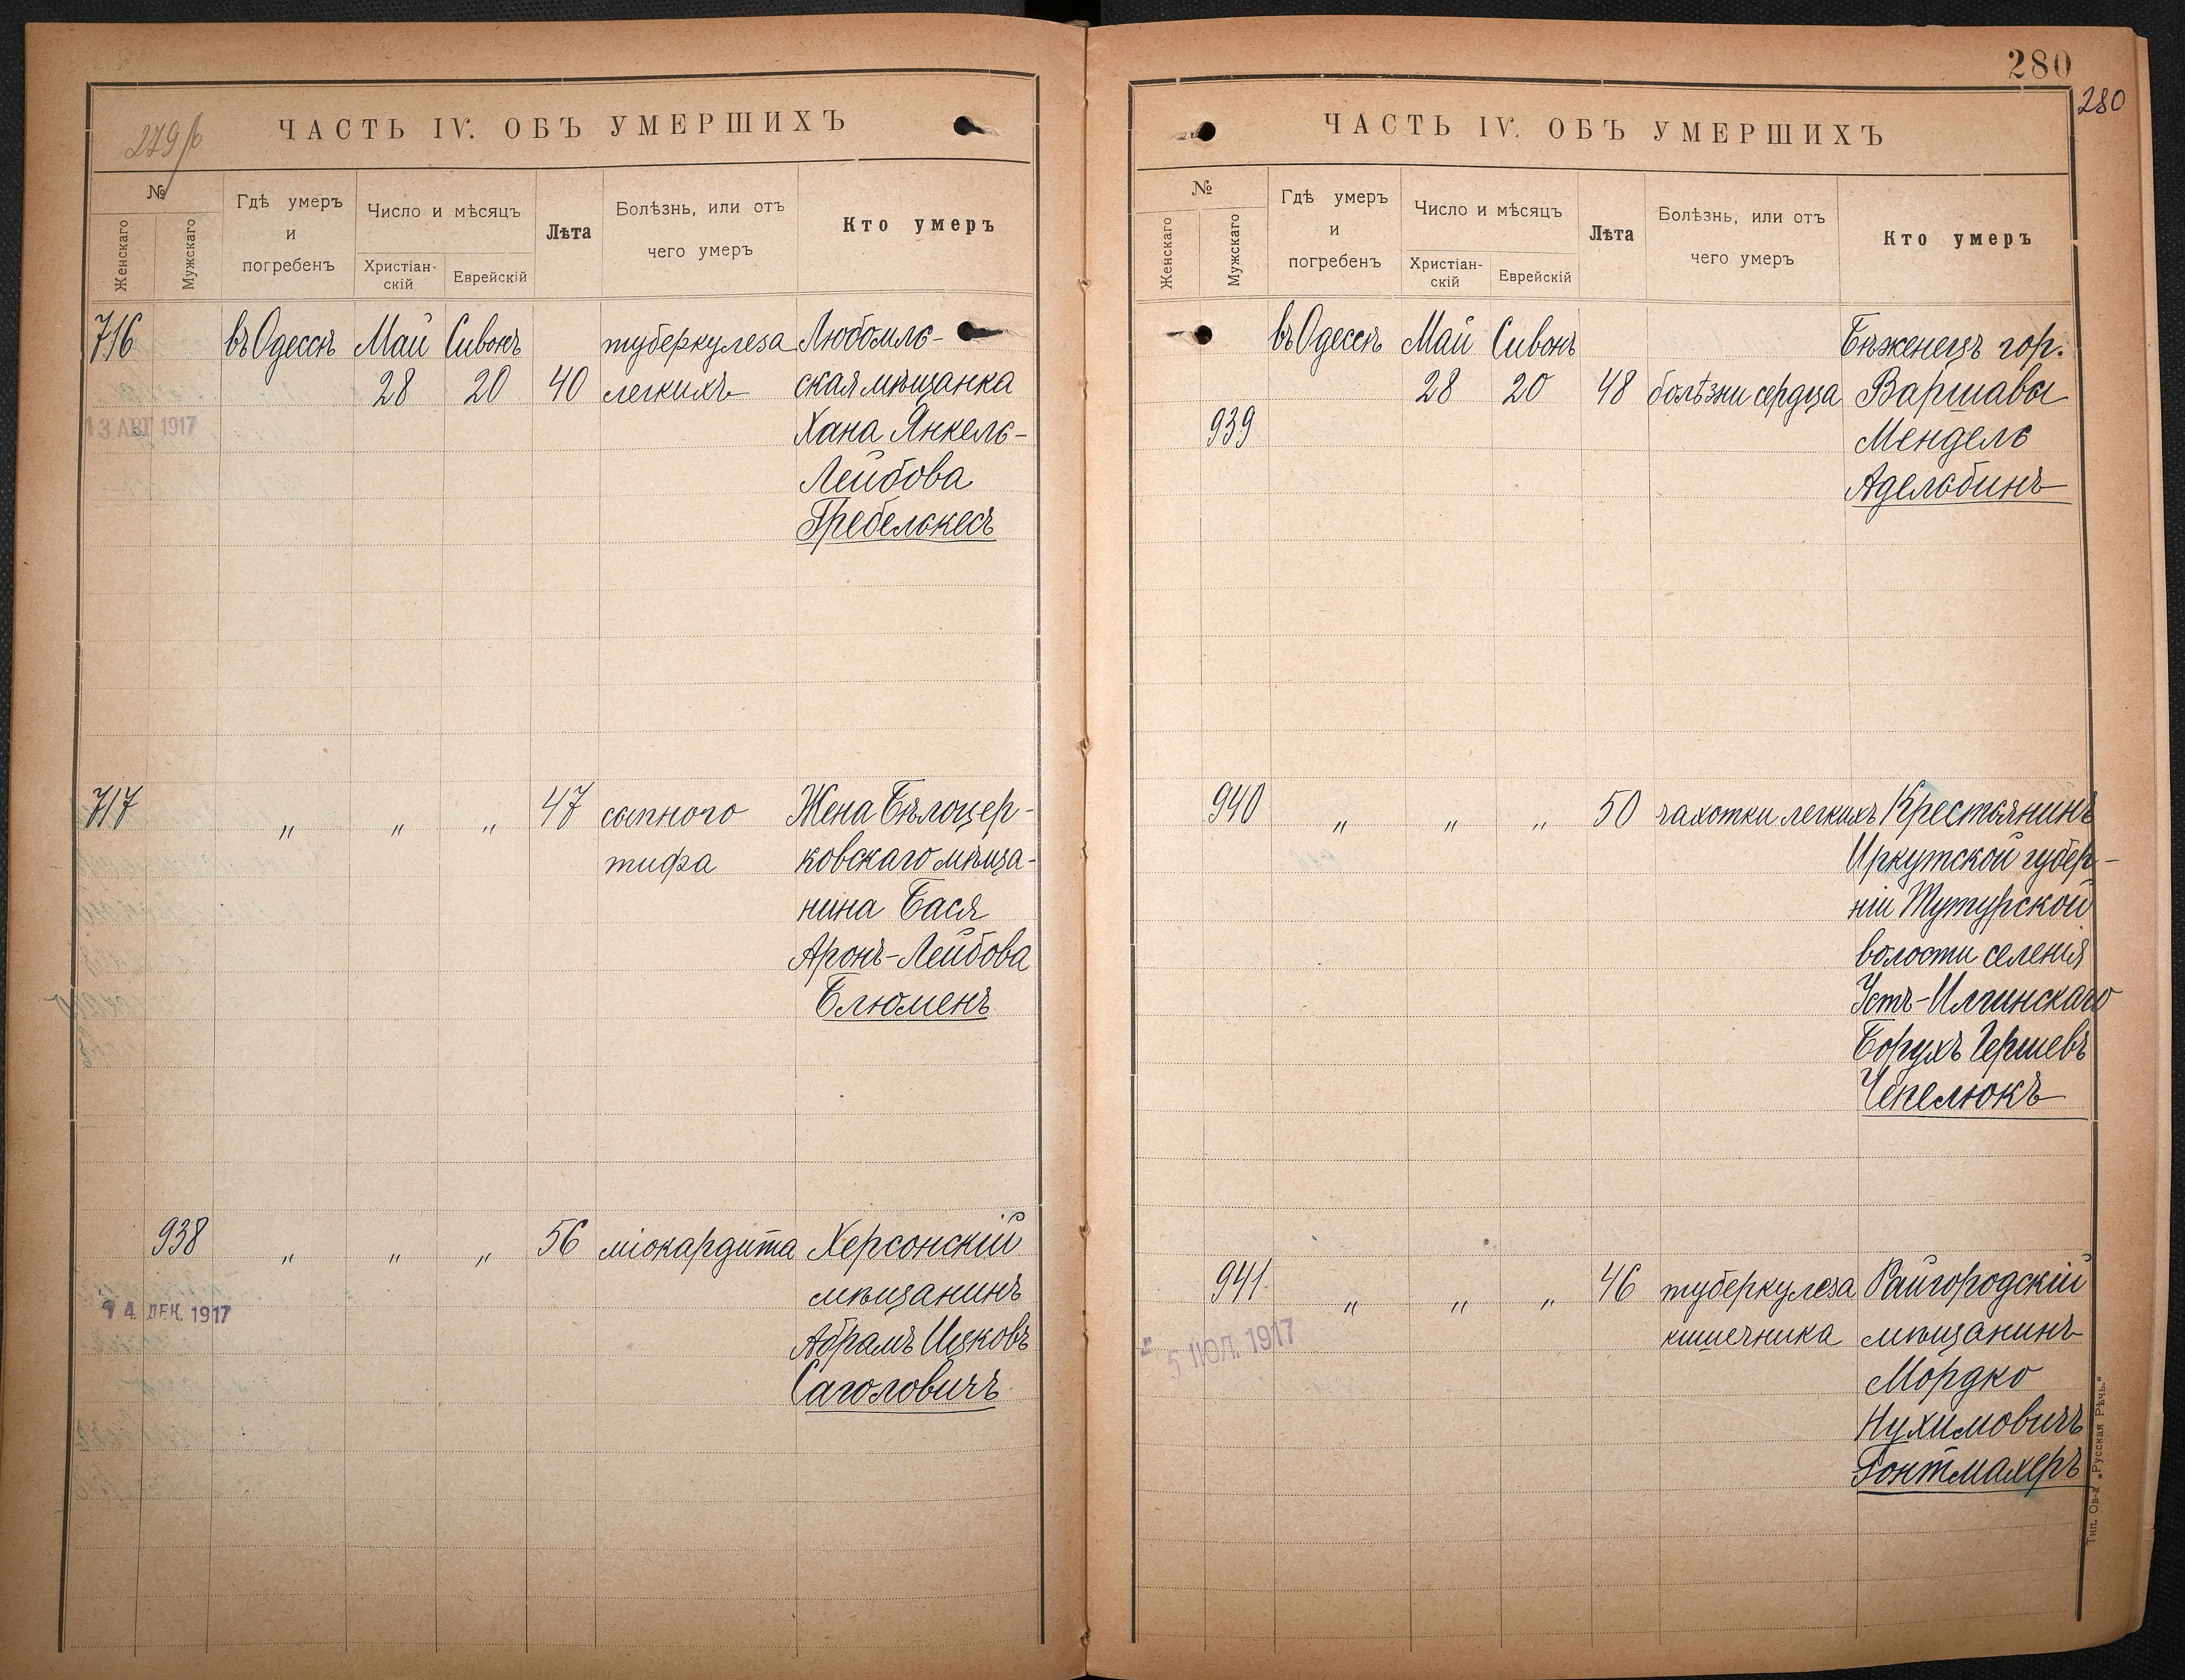 279/б
ЧАСТЬ IV. ОБЪ УМЕРШИХЪ
№
Женскаго
Мужскаго
Гдѣ умеръ
и
погребенъ
Число и мѣсяцъ
Христіан-
скій
Еврейскій
Лѣта
Болѣзнь, или отъ
чего умеръ
Кто умеръ
716 въ Одессѣ Май Сивонъ туберкулеза Любомль-
28 20 40 легкихъ ская мѣщанка
13 АВГ 1917 Хана Янкель-
Лейбова
Гребелькесъ
717 " " " 47 сыпного Жена Бѣлоцер-
тифа ковскаго мѣща-
нина Бася
Аронъ-Лейбова
Блюменъ
938 " " " 56 міокардита Херсонскій
14 ДЕК. 1917 мѣщанинъ
Абрамъ Ицковъ
Саголовичъ
280
280
ЧАСТЬ IV. ОБЪ УМЕРШИХЪ
№
Женскаго
Мужскаго
Гдѣ умеръ
и
погребенъ
Число и мѣсяцъ
Христіан-
скій
Еврейскій
Лѣта
Болѣзнь, или отъ
чего умеръ
Кто умеръ
въ Одессѣ Май Сивонъ Бѣженецъ гор.
28 20 48 болѣзни сердца Варшавы
939 Мендель
Адельбинъ
940 " " " 50 чахотки легкихъ Крестьянинъ
Иркутской губер-
ніи Тутурской
волости селенія
Усть-Илгинскаго
Борухъ Гершевъ
Чепелюкъ
941 " " " 46 туберкулеза Райгородскій
5 ІЮЛ. 1917 кишечника мѣщанинъ
Мордко
Нухимовичъ
Гонтмахеръ
Тип. Ов-а „Русская Рѣчь.“